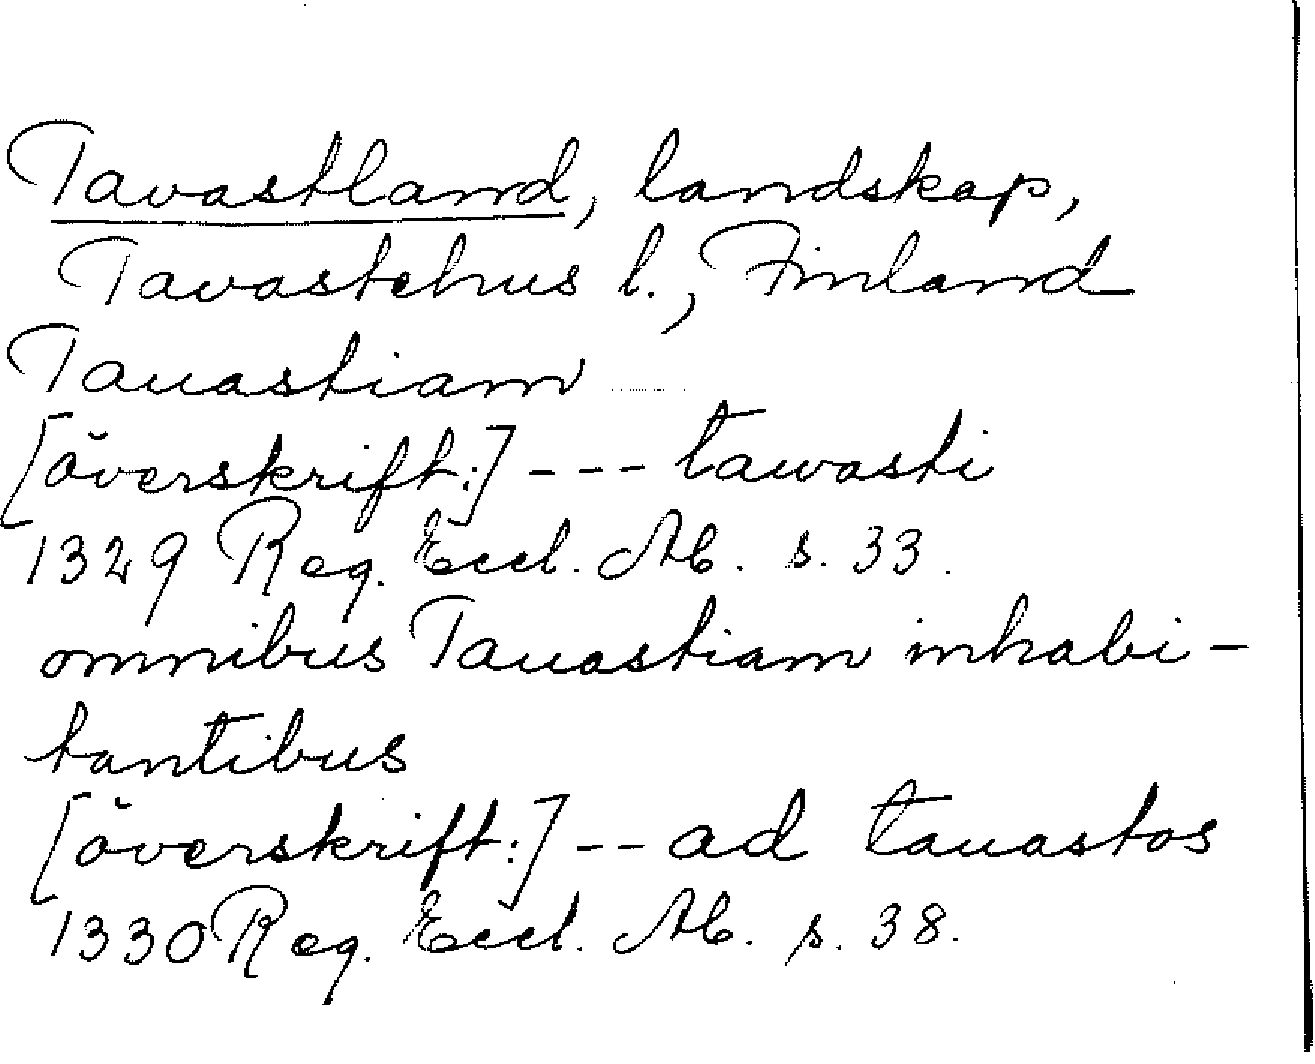 Tavastland, landskap,
Tavastehus l., Finland
Tauastiam
[överskrift:] --- tawasti
1329 Reg. Eccl. Ab. s. 33.
omnibus Tauastiam inhabi-
tantibus
[överskrift:] -- ad tauastos
1330 Reg. Eccl. Ab. s. 38.